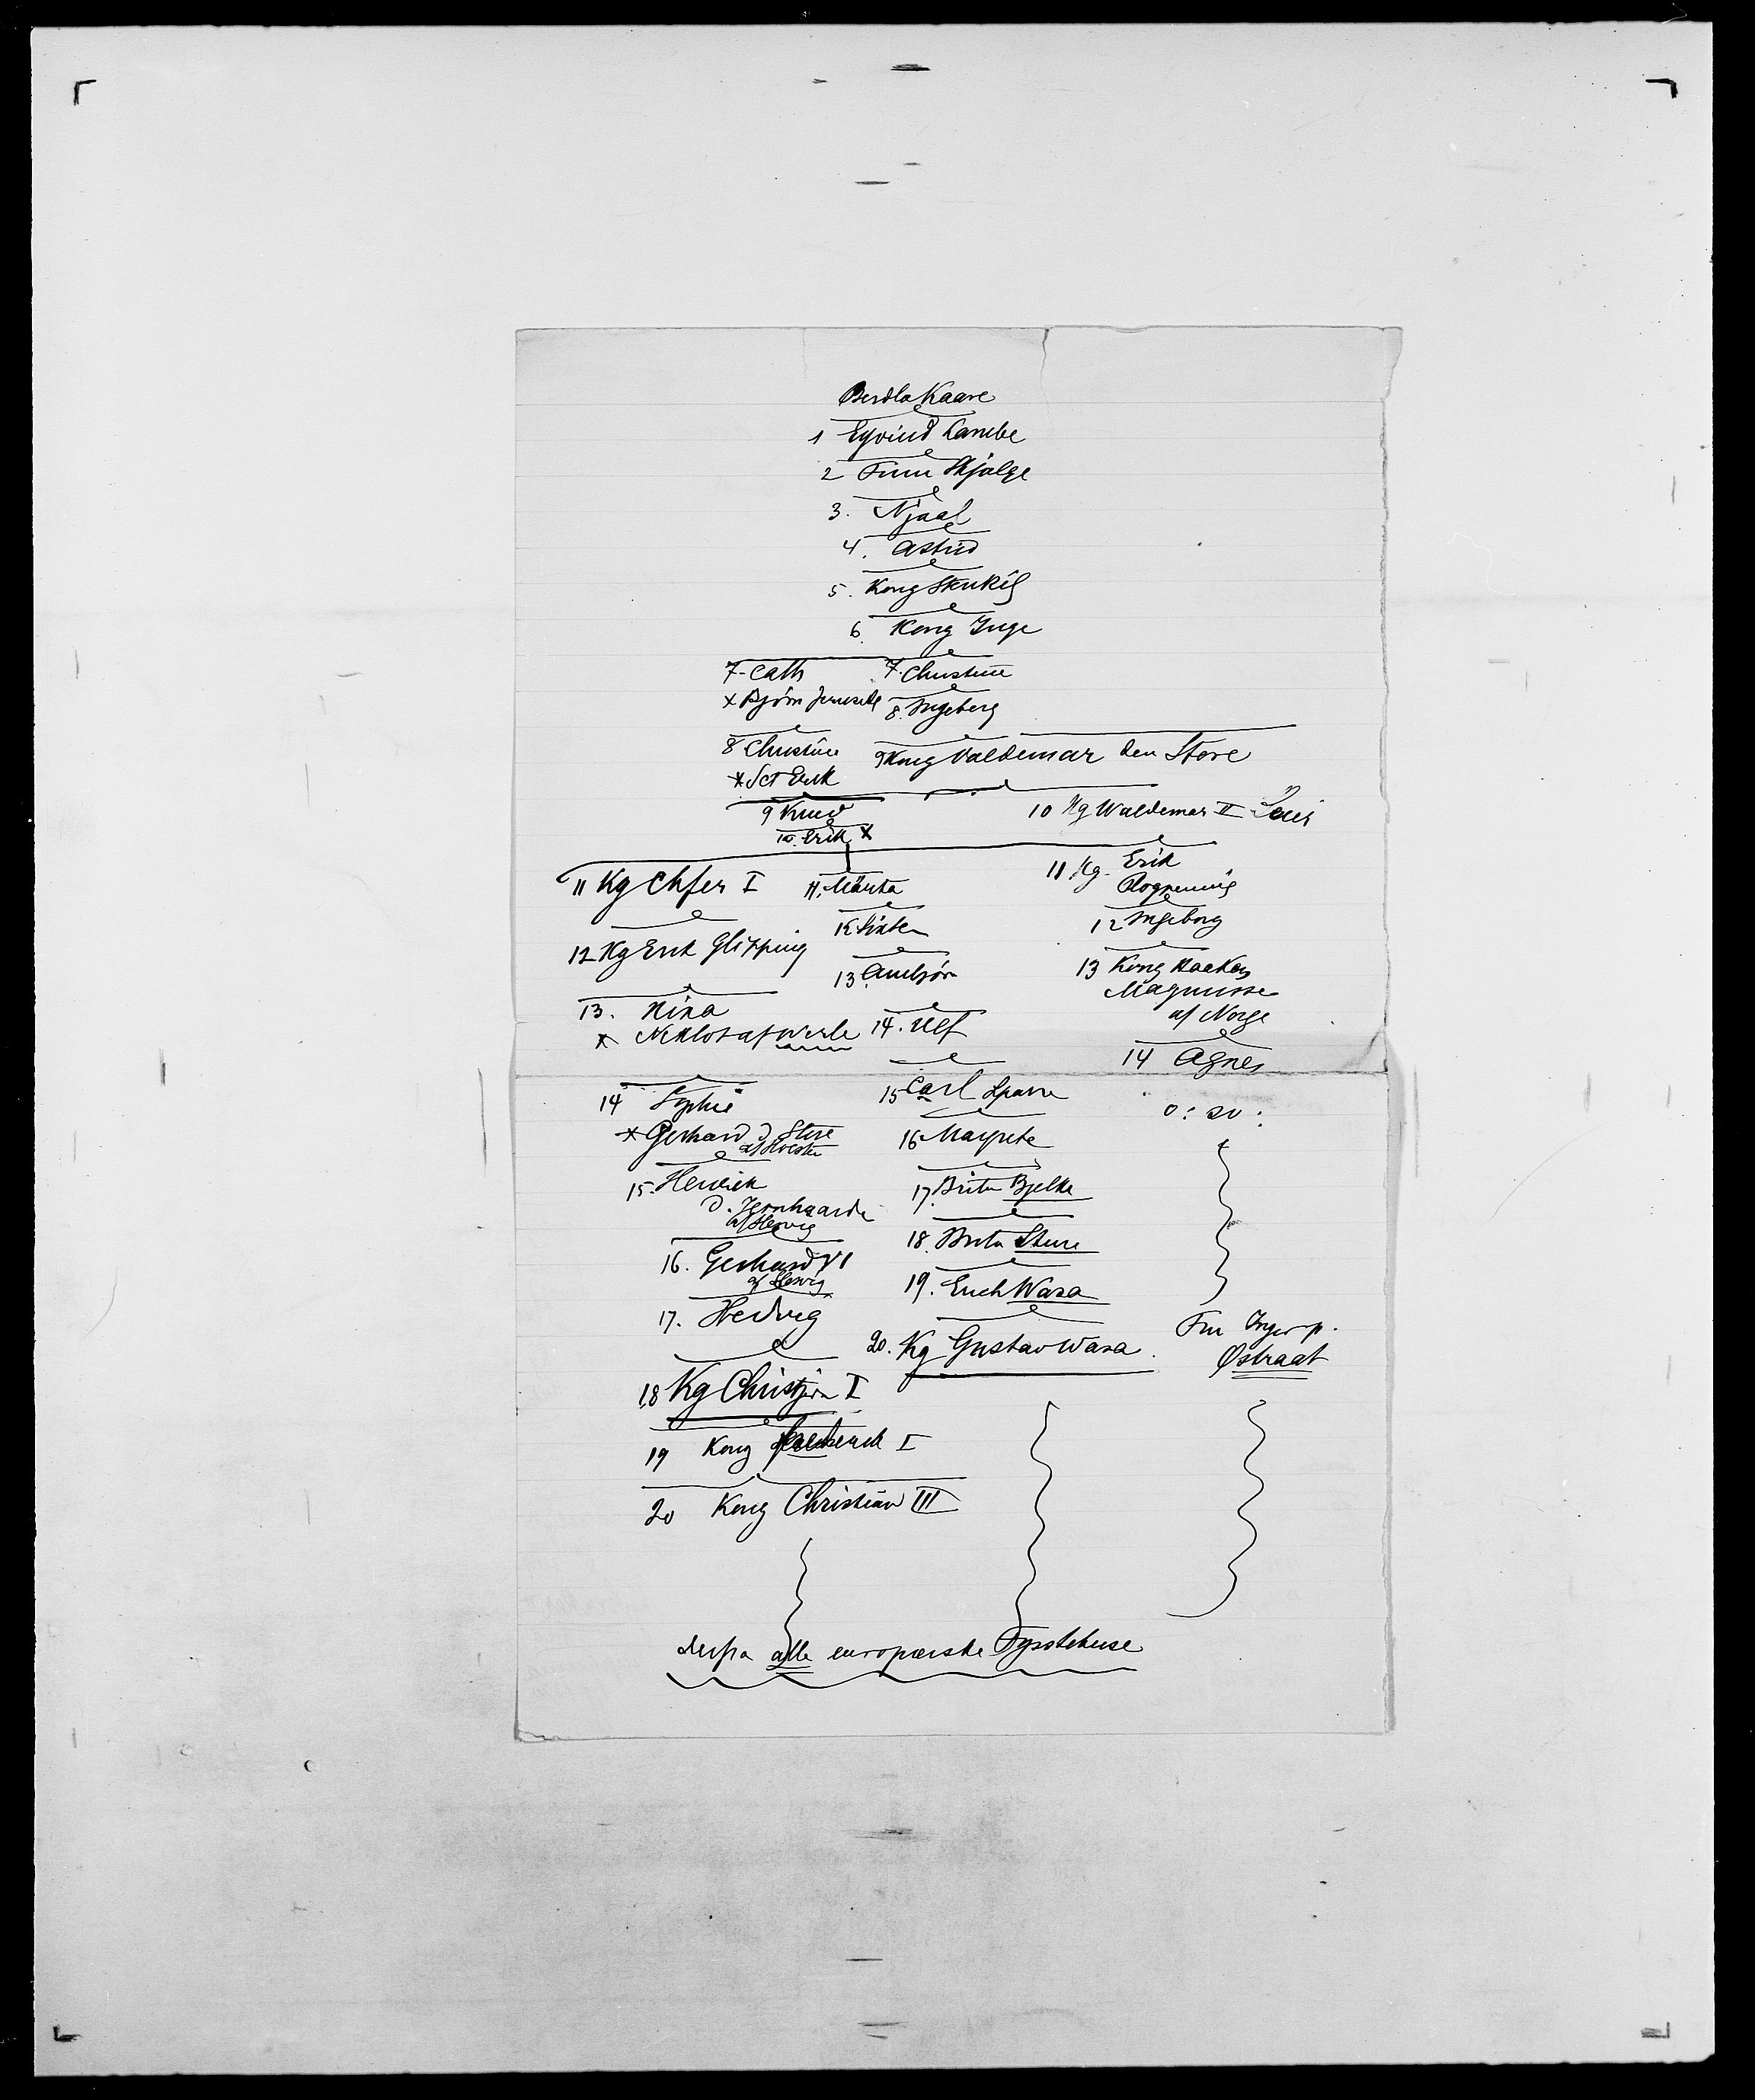 Berdla Kaare
1 Eyvind Lambe
2 Finn Skjalge
3. Njaal
4. Astrid
5. Kong Stenkil
6. Kong Inge
7- Cath 7. Christine
x Bjørn Jernside 8. Ingeborg
8 Christine 9 Kong Valdemar den Store
x Sct Erik
9 Knud 10 Kg Waldemar II Seier
10. Erik x
11 Kg Chfer I 11. Märta 11 Kg. Erik
Plogpennig
12 Kg Erik Glipping 12 Sixten 12 Ingeborg
13. Ambjörn 13 Kong Haakon
Magnusse
af Norge
13. Rixa
x Niklot af Werle 14. Ulf 14 Agnes
14 Sophie 15 Carl Sparre o: sv:
x Gerhard d Store
af Holsten 16 Margrete
15. Henrik 17. Brita Bjelke
d. Jernhaarde
af Slesvig
16. Gerhard VI 18. Brita Sture
af Slesvig
17. Hedvig 19. Erich Wasa
20. Kg Gustav Wasa Fru Inger p.
Østraat
18 Kg Christjern I
19 Kong Frederick I
20 Kong Christian III
derfra alle europæiske Fyrstehuse